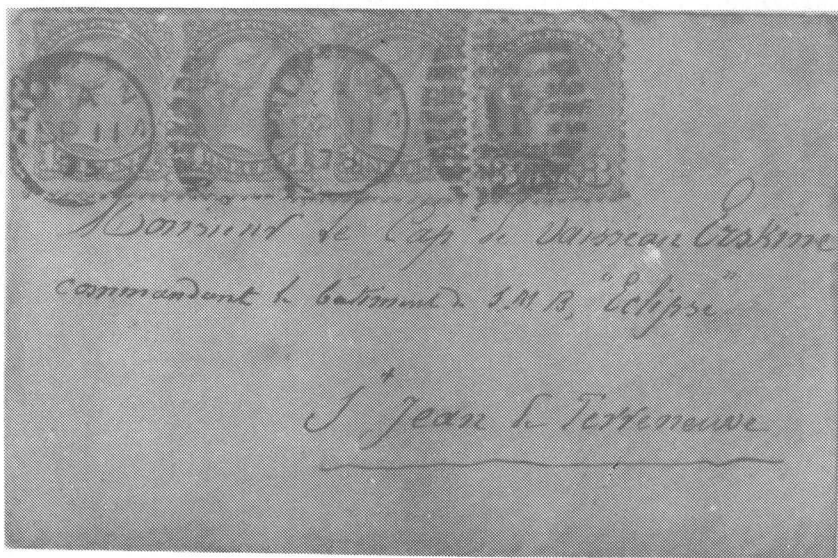 A
SP 11
75
Monsieur Le Cap de Vaisseau Erskine
commandant le bâtiment de S.M.B, "Eclipse"
St Jean de Terreneuve